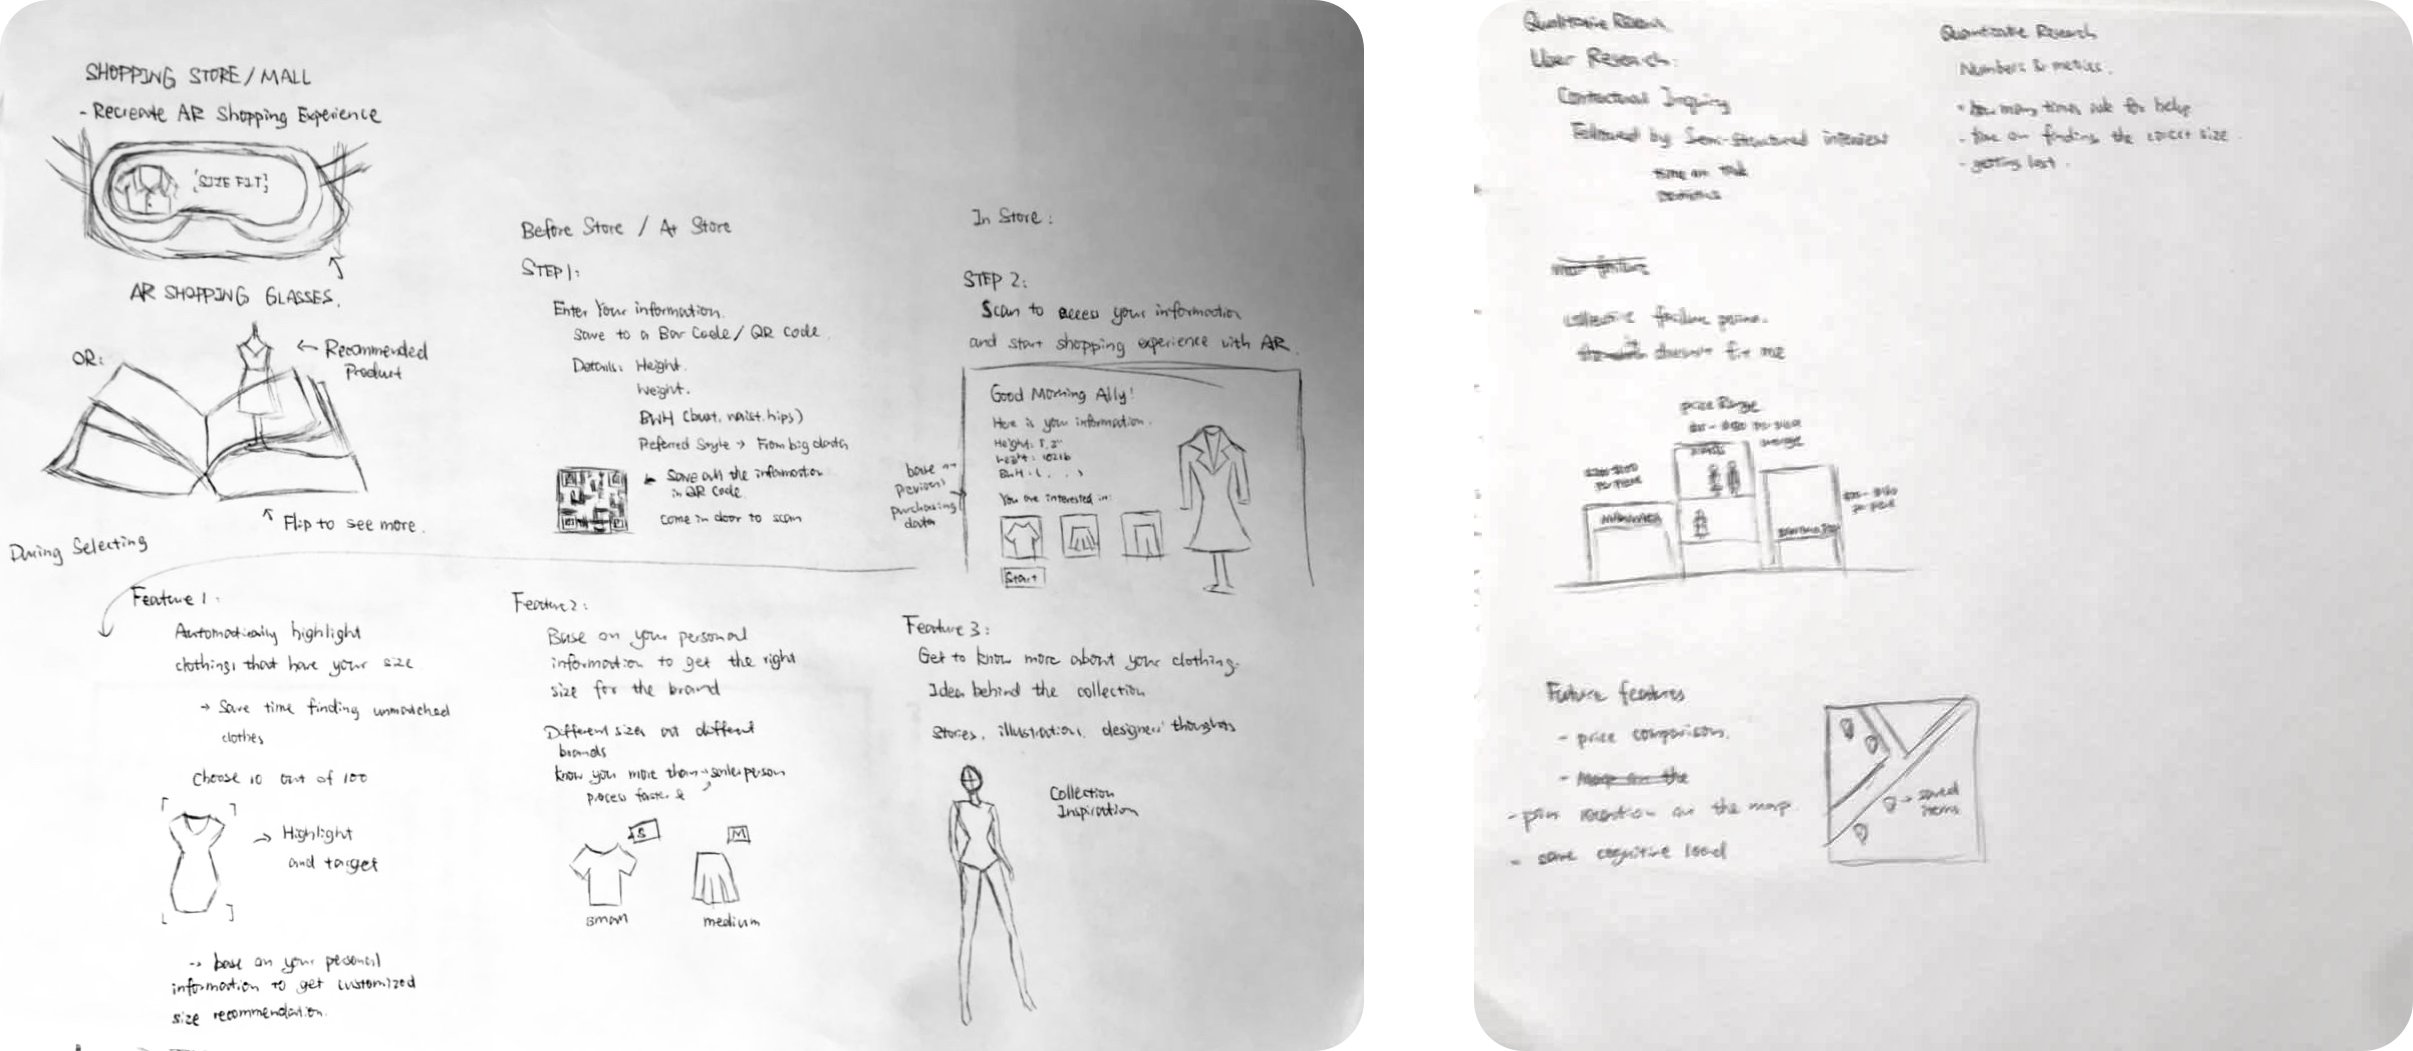 SHOPPING STORE/MALL
- Recreate AR Shopping Experience
[SIZE FIT]
AR SHOPPING GLASSES.
OR:
← Recommended
Product
Flip to see more.
Before Store / At Store
STEP 1:
Enter Your information.
Save to a Bar Code/ QR code.
Details: Height.
Weight.
BWH (bust, waist, hips)
Preferred Style → From big data
Save all the information
in QR Code.
Come in door to scan
In Store:
STEP 2:
Scan to access your information
and start shopping experience with AR.
Good Morning Ally!
Here is your information.
Height: 5'2"
Weight: 102lb
BWH: ( , , )
You are interested in:
Start
base on
previous
purchasing
data
During Selecting
Feature 1:
Automatically highlight
clothings that have your size
→ Save time finding unmatched
clothes
Choose 10 out of 100
→ Highlight
and target
→ base on your personal
information to get customized
size recommendation.
Feature 2:
Base on your personal
information to get the right
size for the brand
Different sizes at different
brands
know you more than → salesperson
process faster &
S
M
small
medium
Feature 3:
Get to know more about your clothing.
Idea behind the collection
Stories, illustrations, designers' thoughts
Collection
Inspiration
Qualitative Research
User Research:
Contextual Inquiry
Followed by Semi-Structured interview
time on task
Quantitative Research
Numbers & metrics.
- how many times ask for help
- time on finding the correct size.
- getting lost.
main failure
collective failure point.
doesn't fit me
price Range
average
Future features
- price comparison.
- Map on the
- pin location on the map.
- save cognitive load
→ saved
items